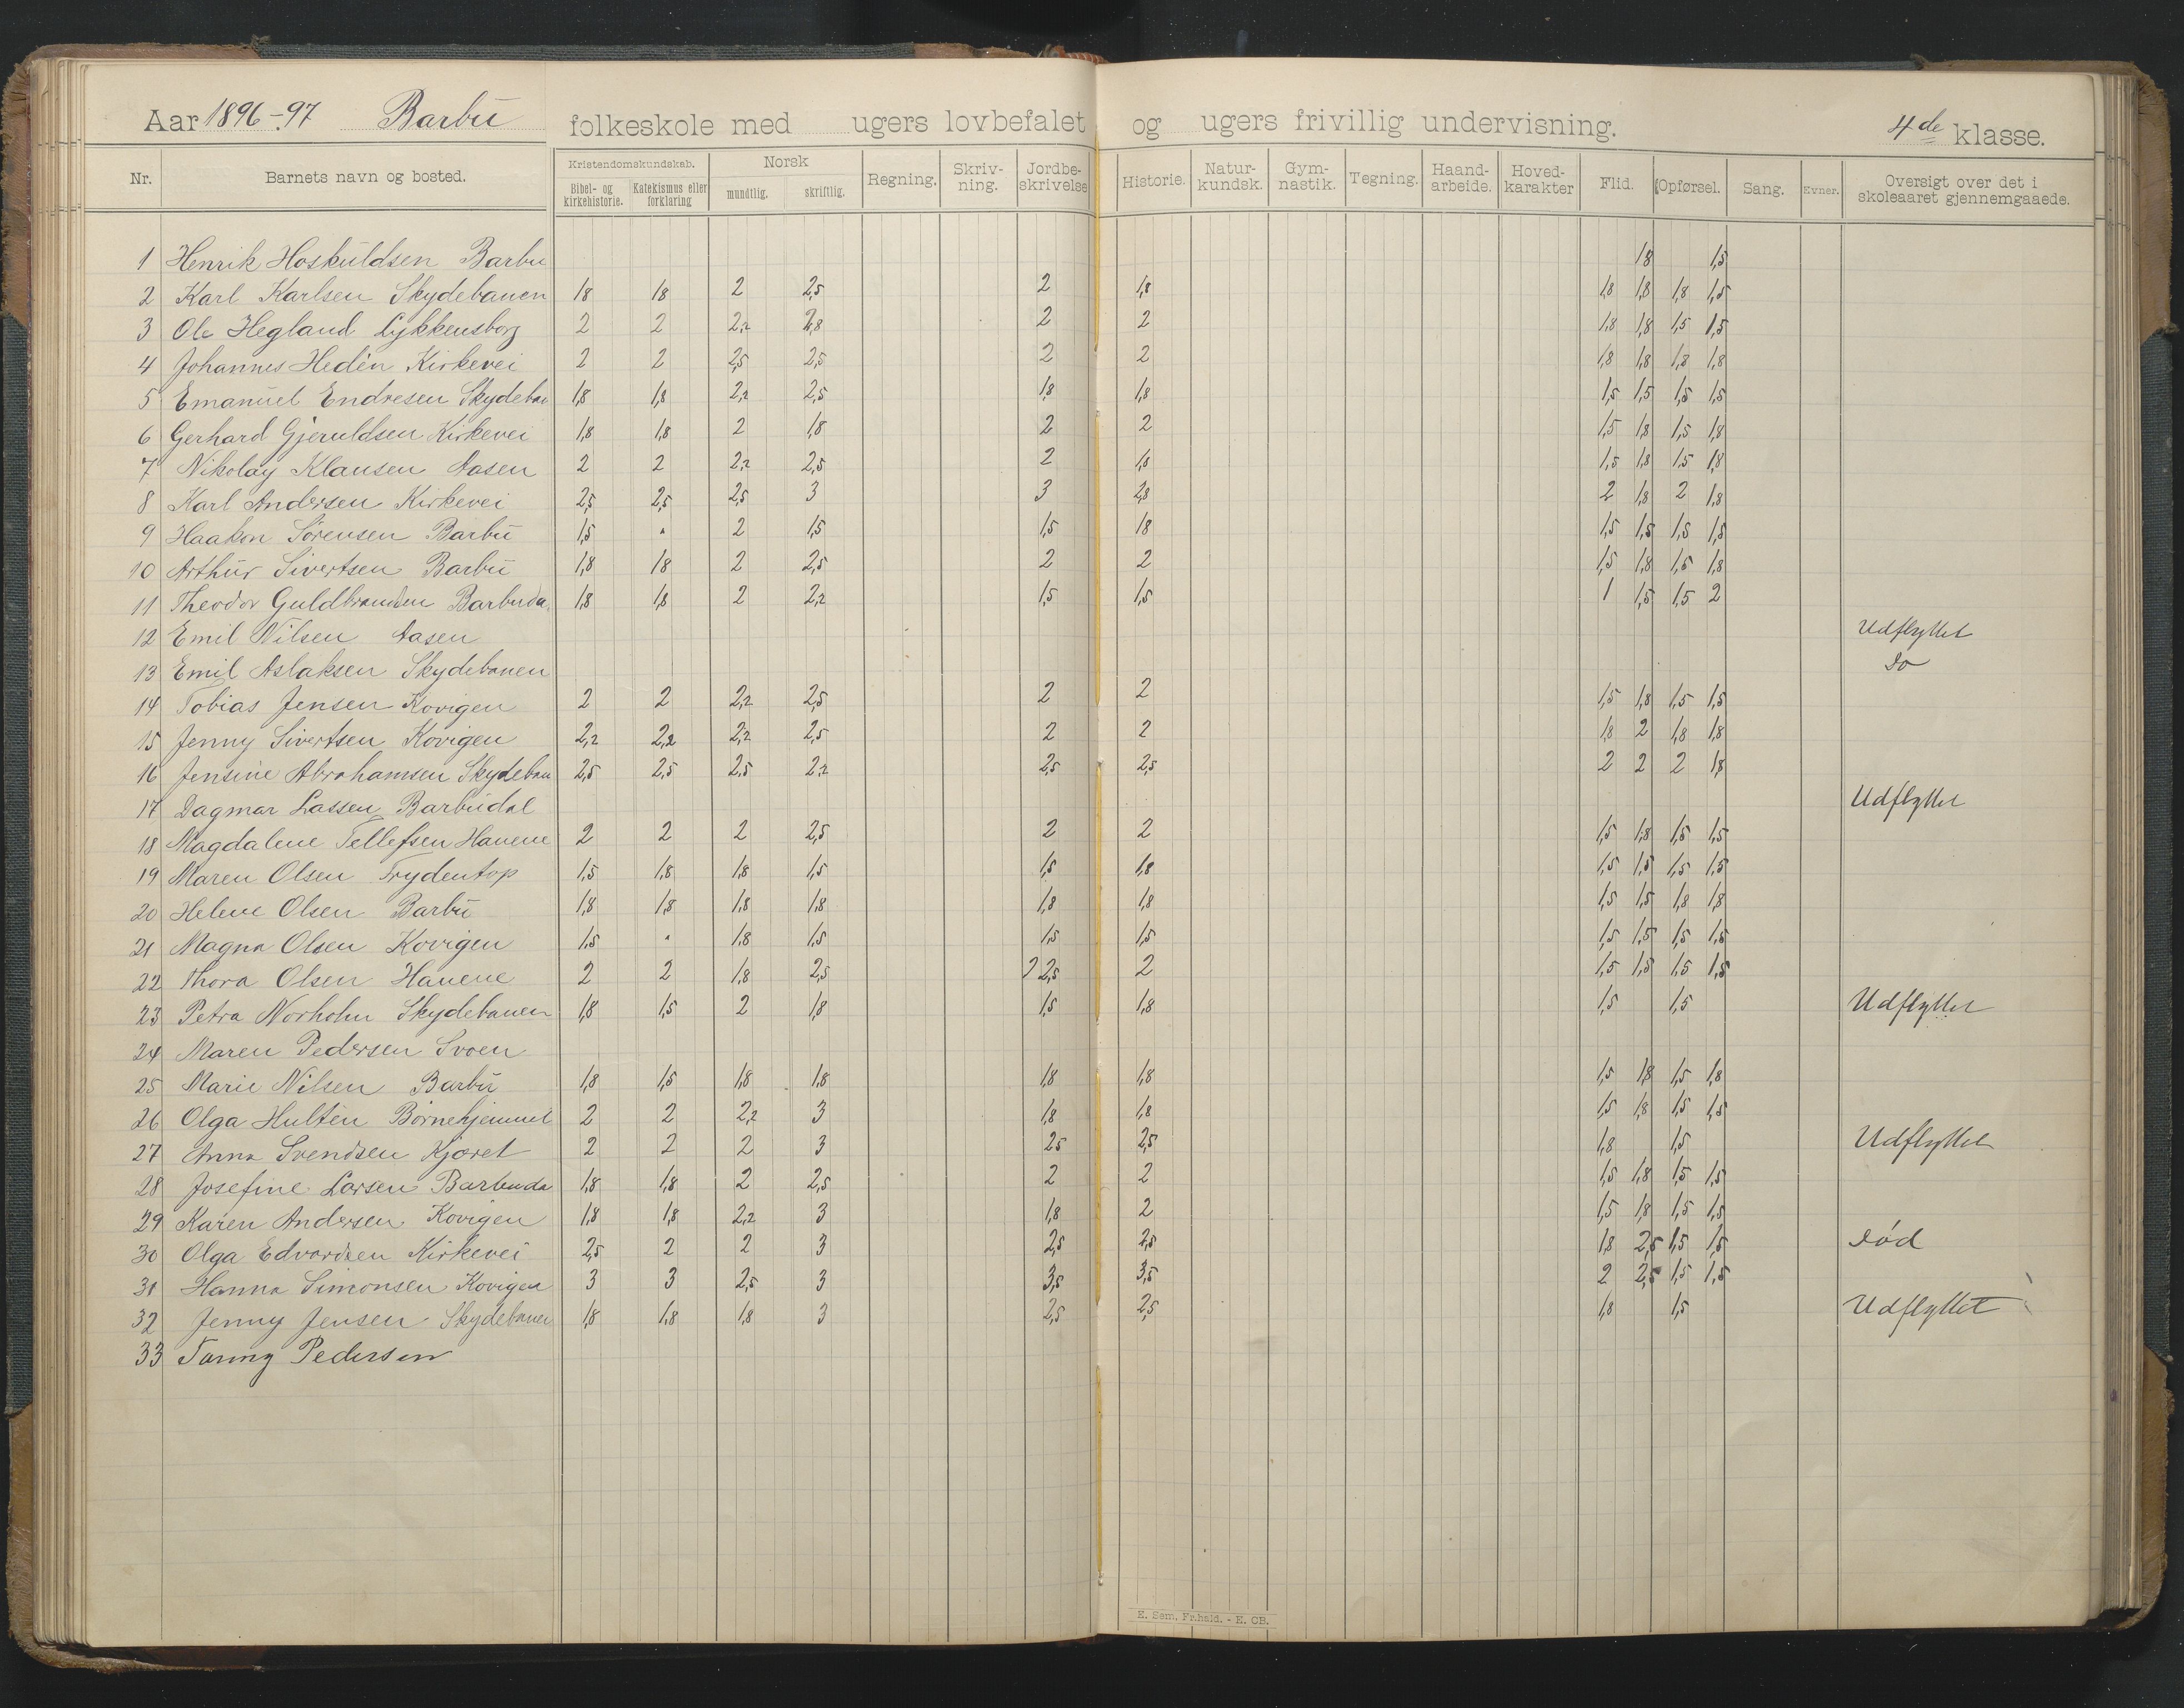 Aar 1896-97 Barbu folkeskole med ugers lovbefalet og ugers frivillig undervisning. 4de klasse.
Nr. Barnets navn og bosted. Kristendomskundskab. Bibel- og kirkehistorie. Katekismus eller forklaring Norsk mundtlig. skriftlig. Regning. Skrivning. Jordbeskrivelse Historie. Naturkundsk. Gymnastik. Tegning. Haandarbeide. Hovedkarakter Flid. Opførsel. Sang. Evner. Oversigt over det i skoleaaret gjennemgaaede.
1 Henrik Hoskuldsen Barbu 1,8 1,5
2 Karl Karlsen Skydebanen 1,8 1,8 2 2,5 2 1,8 1,8 1,8 1,8 1,5
3 Ole Hegland Lykkensborg 2 2 2,2 2,8 2 2 1,8 1,8 1,5 1,5
4 Johannes Hedén Kirkevei 2 2 2,5 2,5 2 2 1,8 1,8 1,8 1,8
5 Emanuel Endresen Skydeban 1,8 1,8 2,2 2,5 1,8 1,8 1,5 1,5 1,5 1,5
6 Gerhard Gjeruldsen Kirkevei 1,8 1,8 2 1,8 2 2 1,5 1,8 1,5 1,8
7 Nikolay Klausen Aasen 2 2 2,2 2,5 2 1,8 1,5 1,8 1,5 1,8
8 Karl Andersen Kirkevei 2,5 2,5 2,5 3 3 2,8 2 1,8 2 1,8
9 Haakon Sørensen Barbu 1,5 " 2 1,5 1,5 1,8 1,5 1,5 1,5 1,5
10 Arthur Sivertsen Barbu 1,8 1,8 2 2,5 2 2 1,5 1,8 1,5 1,8
11 Theodor Guldbrandsen Barbuda. 1,8 1,8 2 2,2 1,5 1,5 1 1,5 1,5 2
12 Emil Nilsen Aasen Udflyttet
13 Emil Aslaksen Skydebanen Do
14 Tobias Jensen Kovigen 2 2 2,2 2,5 2 2 1,5 1,8 1,5 1,5
15 Jenny Sivertsen Kovigen 2,2 2,2 2,2 2,5 2 2 1,8 2 1,8 1,8
16 Jensine Abrahamsen Skydeban 2,5 2,5 2,5 2,2 2,5 2,5 2 2 2 1,8
17 Dagmar Lassen Barbudal Udflyttet
18 Magdalene Tellefsen Hauene 2 2 2 2,5 2 2 1,5 1,8 1,5 1,5
19 Maren Olsen Frydentop 1,5 1,8 1,8 1,5 1,5 1,8 1,5 1,5 1,5 1,5
20 Helene Olsen Barbu 1,8 1,8 1,8 1,8 1,8 1,8 1,5 1,5 1,8 1,8
21 Magna Olsen Kovigen 1,5 " 1,8 1,5 1,5 1,5 1,5 1,5 1,5 1,5
22 Thora Olsen Hauene 2 2 1,8 2,5 2,5 2 1,5 1,5 1,5 1,5
23 Petra Norholm Skydebanen 1,8 1,5 2 1,8 1,5 1,8 1,5 1,5 Udflyttet
24 Maren Pedersen Svoen
25 Marie Nilsen Barbu 1,8 1,5 1,8 1,8 1,8 1,8 1,5 1,8 1,5 1,8
26 Olga Hultén Børnehjemmet 2 2 2,2 3 1,8 1,8 1,5 1,8 1,5 1,5
27 Anna Svendsen Kjæret 2 2 2 3 2,5 2,5 1,8 1,5 Udflyttet
28 Josefine Larsen Barbuda 1,8 1,8 2 2,5 2 2 1,5 1,8 1,5 1,5
29 Karen Andersen Kovigen 1,8 1,8 2,2 3 1,8 2 1,5 1,8 1,5 1,5
30 Olga Edvardsen Kirkevei 2,5 2 2 3 2,5 2,5 1,8 2,5 1,5 1,5 Død
31 Hanna Simonsen Kovigen 3 3 2,5 3 3,5 3,5 2 2,5 1,5 1,5
32 Jenny Jensen Skydebanen 1,8 1,8 1,8 3 2,5 2,5 1,8 1,5 Udflyttet
33 Fanny Pedersen
E. Sem, Fr.hald. - E. CB.